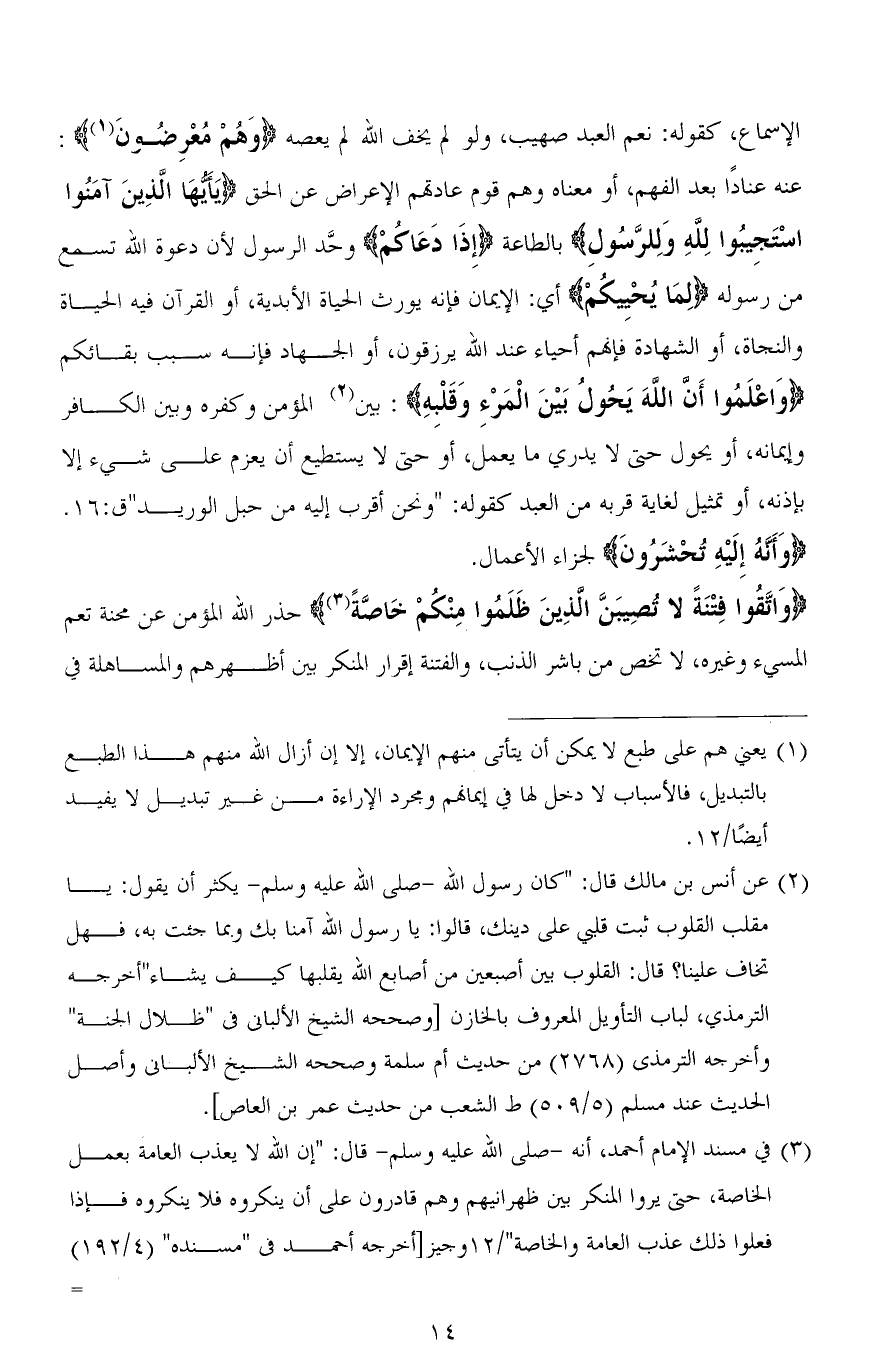 الإسماع، كقوله: نعم العبد صهيب، ولو لم يخف الله لم يعصه ﴿وَهُمْ مُعْرِضُونَ(١)﴾ :
عنه عنادًا بعد الفهم، أو معناه وهم قوم عادتهم الإعراض عن الحق ﴿يَأَيُّهَا الَّذِينَ آمَنُوا
اسْتَجِيبُوا لِلَّهِ وَلِلرَّسُولِ﴾ بالطاعة ﴿إِذَا دَعَاكُمْ﴾ وحَّد الرسول لأن دعوة الله تسمع
من رسوله ﴿لِمَا يُحْيِيكُمْ﴾ أي: الإيمان فإنه يورث الحياة الأبدية، أو القرآن فيه الحياة
والنجاة، أو الشهادة فإنهم أحياء عند الله يرزقون، أو الجهاد فإنه سبب بقائكم
﴿وَاعْلَمُوا أَنَّ اللَّهَ يَحُولُ بَيْنَ الْمَرْءِ وَقَلْبِهِ﴾ : بين(٢) المؤمن وكفره وبين الكافر
وإيمانه، أو يحول حتى لا يدري ما يعمل، أو حتى لا يستطيع أن يعزم على شيء إلا
بإذنه، أو تمثيل لغاية قربه من العبد كقوله: "ونحن أقرب إليه من حبل الوريد"ق:١٦.
﴿وَأَنَّهُ إِلَيْهِ تُحْشَرُونَ﴾ لجزاء الأعمال.
﴿وَاتَّقُوا فِتْنَةً لا تُصِيبَنَّ الَّذِينَ ظَلَمُوا مِنْكُمْ خَاصَّةً(٣)﴾ حذر الله المؤمن عن محنة تعم
المسيء وغيره، لا تخص من باشر الذنب، والفتنة إقرار المنكر بين أظهرهم والمساهلة في
(١) يعني هم على طبع لا يمكن أن يتأتى منهم الإيمان، إلا إن أزال الله منهم هذا الطبع
بالتبديل، فالأسباب لا دخل لها في إيمانهم ومجرد الإراءة من غير تبديل لا يفيد
أيضًا/١٢.
(٢) عن أنس بن مالك قال: "كان رسول الله -صلى الله عليه وسلم- يكثر أن يقول: يا
مقلب القلوب ثبت قلبي على دينك، قالوا: يا رسول الله آمنا بك وبما جئت به، فهل
تخاف علينا؟ قال: القلوب بين أصبعين من أصابع الله يقلبها كيف يشاء"أخرجه
الترمذي، لباب التأويل المعروف بالخازن [وصححه الشيخ الألبانى فى "ظلال الجنة"
وأخرجه الترمذى (٢٧٦٨) من حديث أم سلمة وصححه الشيخ الألبانى وأصل
الحديث عند مسلم (٥٠٩/٥) ط الشعب من حديث عمر بن العاص].
(٣) في مسند الإمام أحمد، أنه -صلى الله عليه وسلم- قال: "إن الله لا يعذب العامة بعمل
الخاصة، حتى يروا المنكر بين ظهرانيهم وهم قادرون على أن ينكروه فلا ينكروه فإذا
فعلوا ذلك عذب العامة والخاصة"/١٢وجيز[أخرجه أحمد فى "مسنده" (١٩٢/٤)
=
١٤